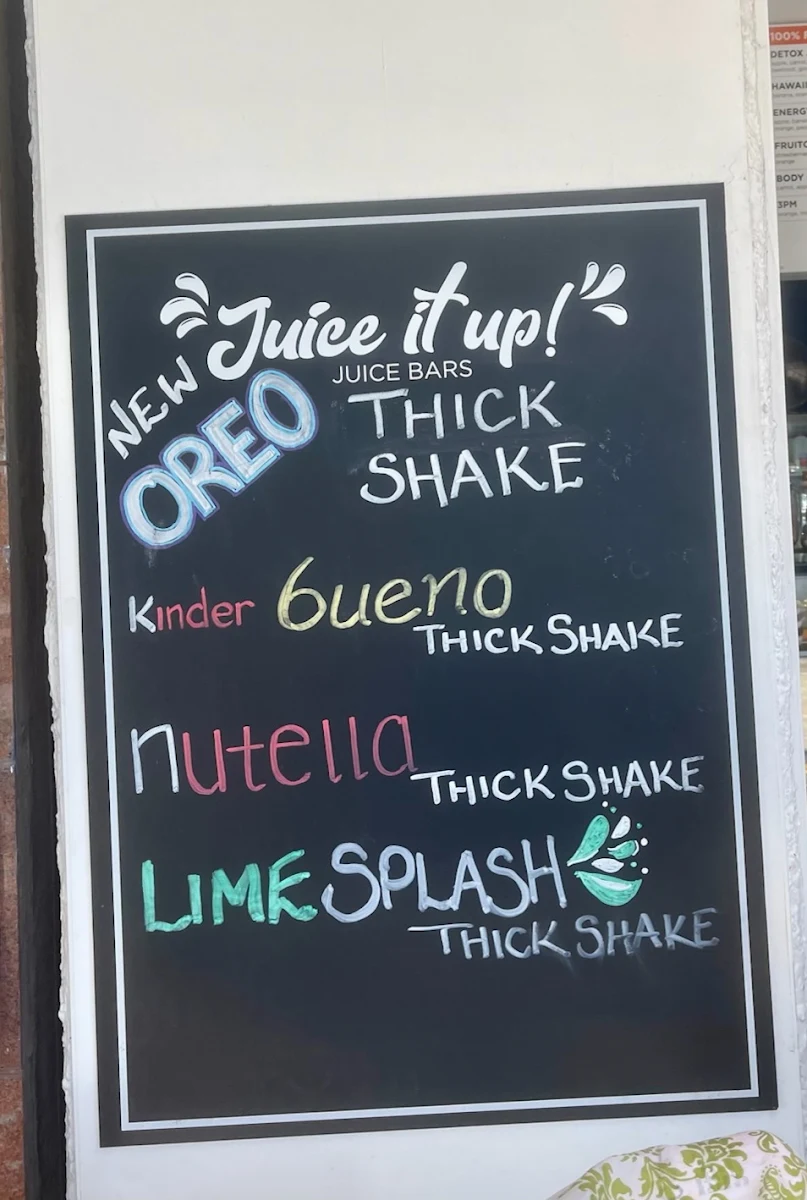 Juice it up!
JUICE BARS
NEW
OREO THICK
SHAKE
Kinder bueno
THICK SHAKE
nutella
THICK SHAKE
LIME SPLASH
THICK SHAKE
100%
DETOX
HAWAII
ENERG
FRUIT
BODY
3PM